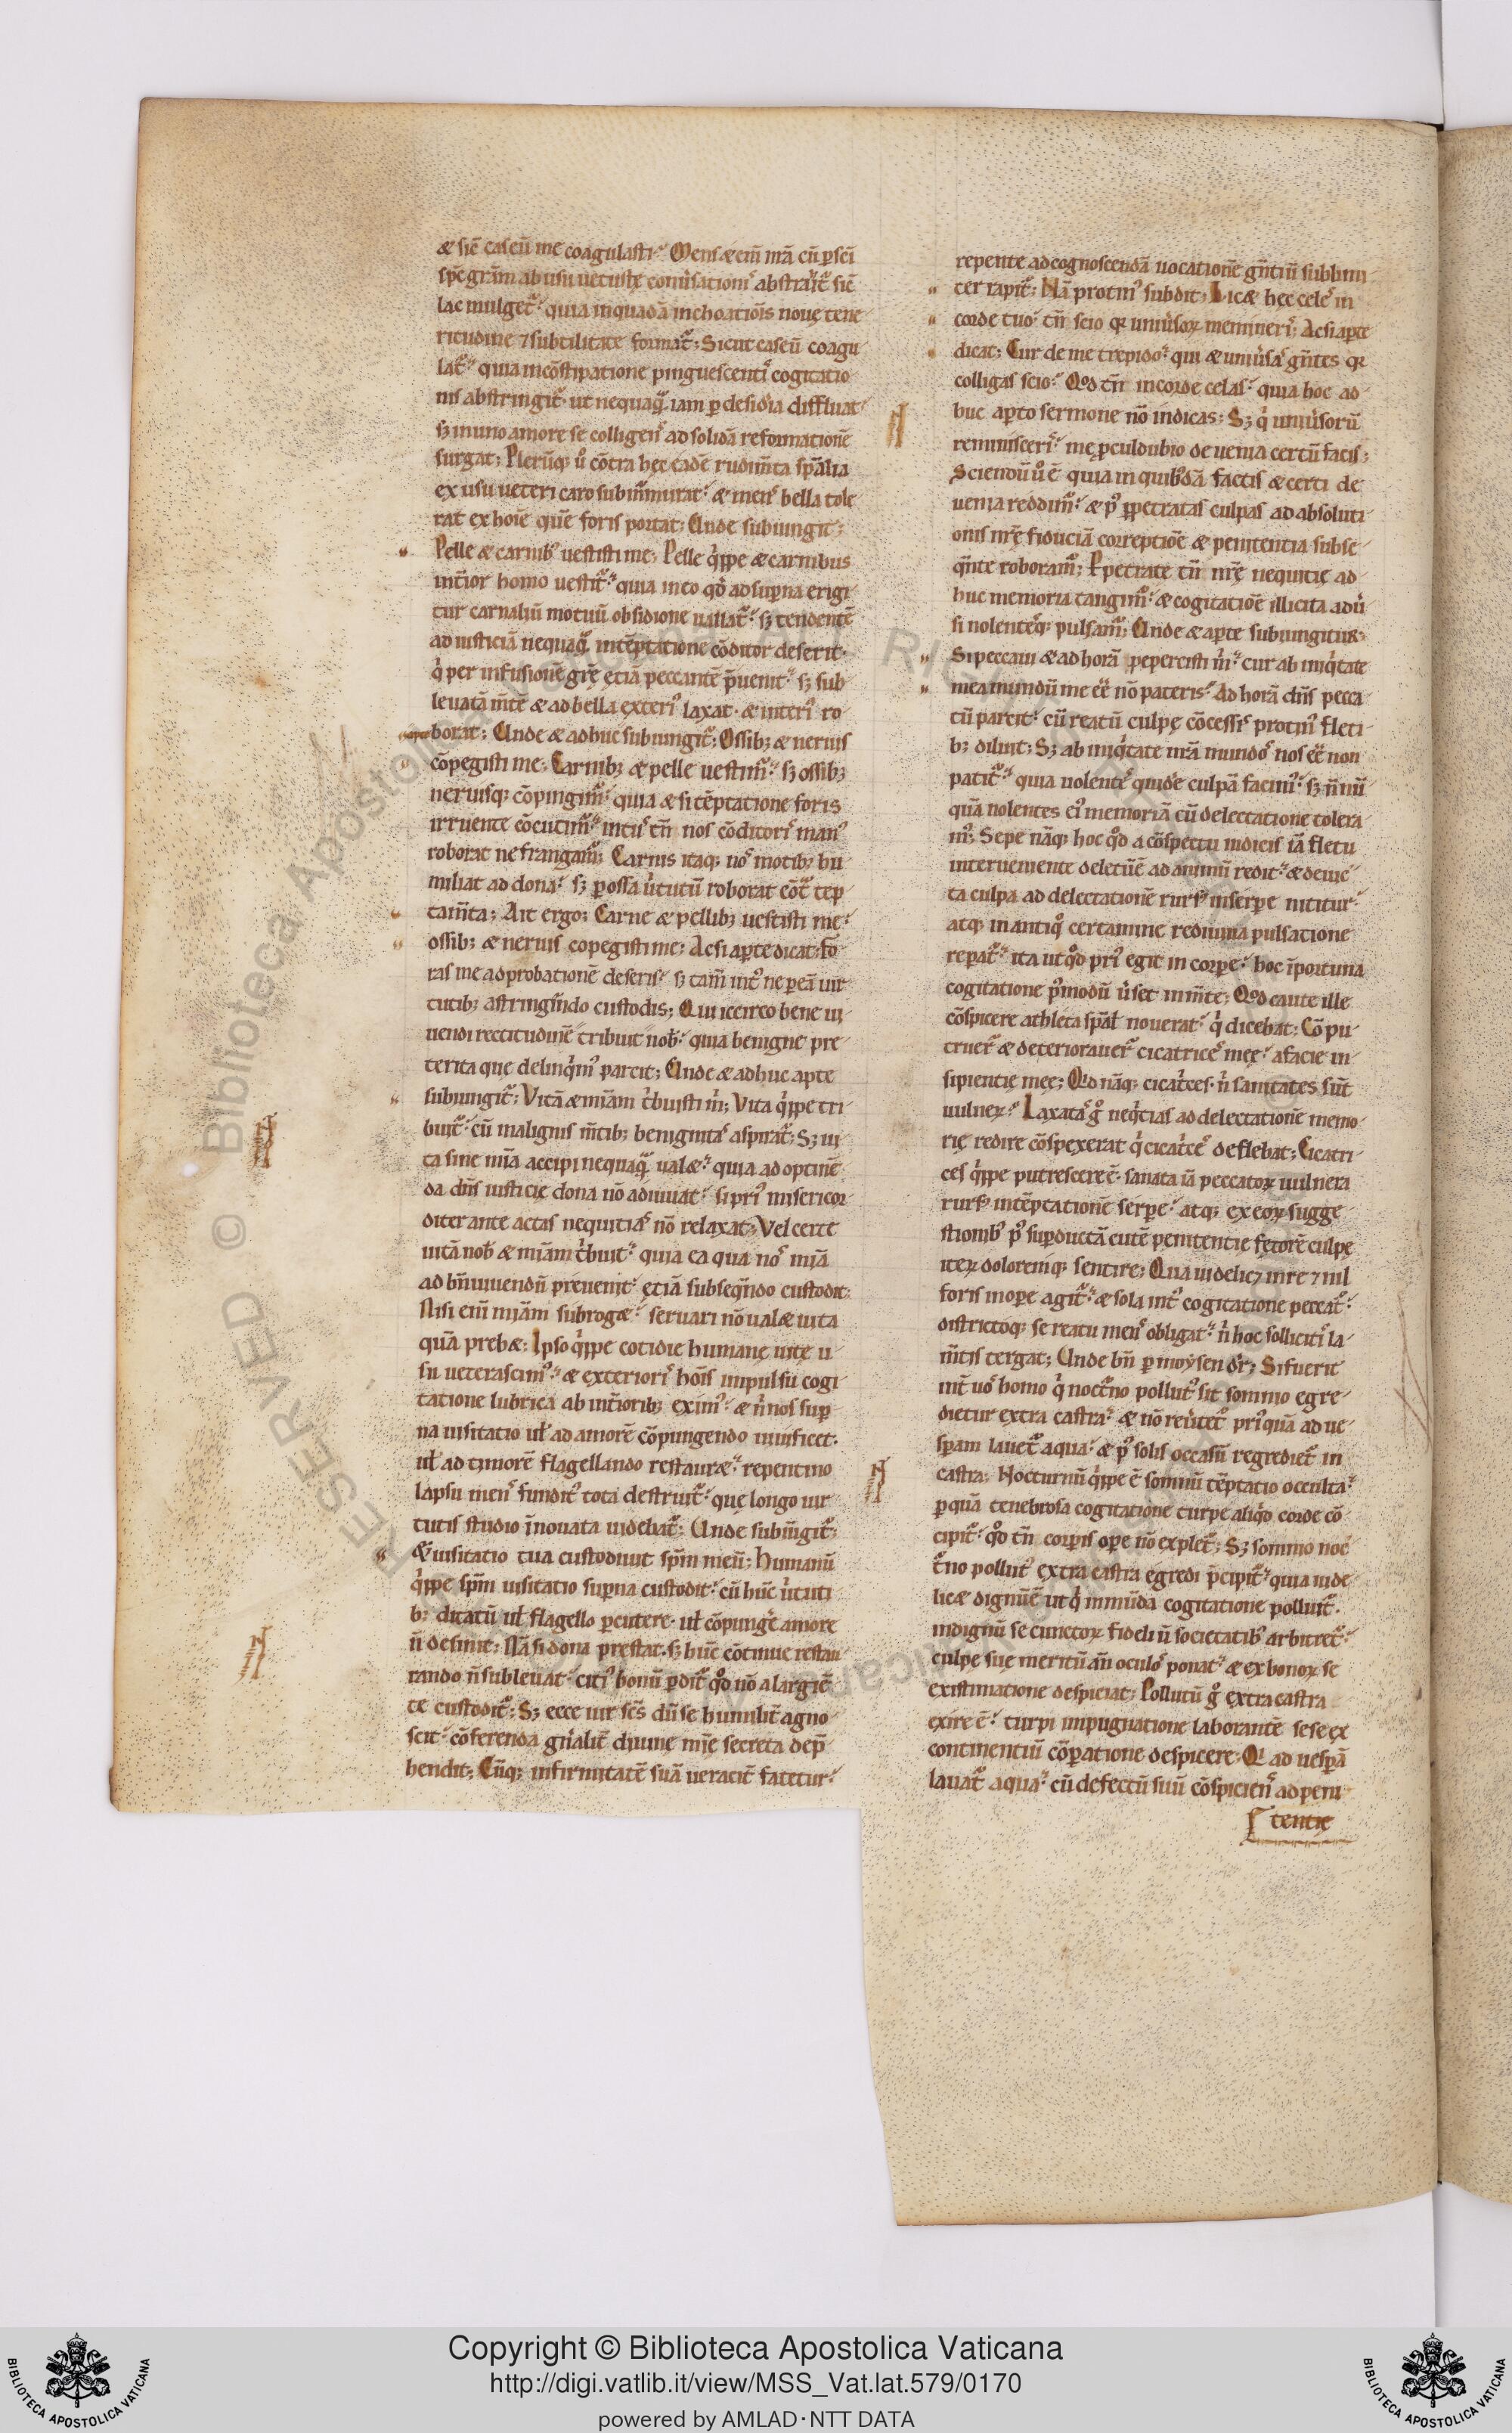 & sic̄ caseū me coagulasti. Mens & eniḿ nr̄a cū ꝑ sc̄i
sp̄c grām ab usu uetustę conuʼsationis abstrahitʼ sic̄
lac mulgetʼ quia in quadā inchoatiōis nouę tene
ritudine ⁊ subtilitate formatʼ; Sicut caseū coagu
latʼ quia in cōstipatione pinguescentis cogitatio
nis abstringitʼ ut nequaquā iam ꝑ desidia diffluat
sꝫ in uno amore se colligens ad solidā reformationē
surgat; Plerūqꝫ uʼo cōtra hęc eadē rudimʼta sp̄alia
ex usu ueteri caro subimmurat & mens bella tole
rat ex hoīe quē foris portat; Unde subiungit;
Pelle & carnibꝰ uestisti me; Pelle qͥppe & carnibus
int̄ior homo uestitʼ quia in eo qd̄ ad suꝑna erigi
tur carnaliū motuū obsidione uallatʼ; sꝫ tendentē
ad iusticiā nequaquā in tēptatione cōditor deserit
qͥ per infusionē grē etiā peccantē p̄uenit sꝫ sub
leuatā mʼtē & ad bella exterius laxat & interius ro
borat; Unde & adhuc subiungitʼ; Ossibꝫ & neruis
cōpegisti me; Carnibꝫ & pelle uestimʼ sꝫ ossibꝫ
neruisqꝫ cōpingimʼ quia & si tēptatione foris
irruente cōcutimʼ intus tn̄ nos cōditoris manꝰ
roborat ne frangamʼ; Carnis itaqꝫ nos motibꝫ hu
miliat ad dona sꝫ ꝑ ossa uʼtutū roborat cōtʼ tēp
tamʼta; Ait ergo; Carne & pellibꝫ uestisti me
ossibꝫ & neruis copegisti me; Ac si aꝑte dicat; fo
ras me ad probationē deseris sꝫ tam̄ intꝰ ne ꝑeā uir
tutibꝫ astringendo custodis; Qui iccirco bene ui
uendi rectitudinē tribuit nob̄ quia benigne pre
terita que delinqͥmꝰ parcit; Unde & adhuc apte
subiungitʼ; Vitā & miām tͥbuisti m̄; Vita qͥppe tri
buitʼ cū malignis mʼtibꝫ benignitas aspiratʼ; Sꝫ ui
ta sine mīa accipi nequaquā ualꝫ quia ad optinē
da dn̄s iusticię dona nō adiuuat si prius misericor
diter ante actas nequitias nō relaxat; Vel certe
uitā nob̄ & miām tͥbuit quia ea qua nos mīa
ad bn̄ uiuendū preuenit etiā subseqn̄do custodit
Nisi eniḿ miām subroget seruari nō ualꝫ uita
quā prebꝫ; Ipso qͥppe cotidie humanę uitę u
su ueterascimꝰ & exterioris hoīs impulsu cogi
tatione lubrica ab int̄ioribꝫ eximꝰ & nͥ nos suꝑ
na uisitatio ul̄ ad amorē cōpungendo uiuificet
ul̄ ad timorē flagellando restauret repentino
lapsu mens funditꝰ tota destruitʼ quę longo uir
tutis studio īnouata uidebatʼ; Unde subiungitʼ;
& uisitatio tua custodiuit sp̄m meū; Humanū
qͥppe sp̄m uisitatio suꝑna custodit cū hūc uʼtuti
bꝫ ditatū ul̄ flagello ꝑcutere ul̄ cōpungʼe amore
n̄ desinit; Nā si dona prestat sꝫ hūc cōtinue restau
rando n̄ subleuat citiꝰ bonū ꝑditʼ qd̄ nō a largiē
te custoditʼ; Sꝫ ecce uir sc̄s dū se humilit̄ agno
scit cōferenda gn̄alit̄ diuinę mīę secreta dep̄
hendit; Cūqꝫ infirmitatē suā ueracit̄ fatetur
repente ad cognoscendā uocationē gn̄tiū sublimi
ter rapitʼ; Nā protinꝰ subdit; Licꝫ hęc celes in
corde tuo tn̄ scio qꝛ uniuʼsoꝝ memineris; Ac si aꝑte
dicat; Cur de me trepido qui & uniuʼsas gn̄tes qꝛ
colligas scio; Qd̄ tn̄ in corde celas quia hoc ad
huc aꝑto sermone nō indicas; Sꝫ qͥ uniuʼsorū
reminisceris me ꝓculdubio de uenia certū facis;
Sciendū uʼo ē quia in quibꝰdā factis & certi de
uenia reddimʼ & pꝰ ꝑpetratas culpas ad absoluti
onis nr̄ę fiduciā correptiōe & penitentia subse
qn̄te roboramʼ; Ꝑpetratę tn̄ nr̄ę nequitię ad
huc memoria tangimʼ & cogitatiōe illicita aduʼ
si nolentesqꝫ pulsamʼ; Unde & aꝑte subiungitur;
Si peccaui & ad horā pepercisti m̄ cur ab iniqͥtate
mea mundū me eē nō pateris; Ad horā dn̄s pecca
tū parcit cū reatū culpę cōcessis protinꝰ fleti
bꝫ diluit; Sꝫ ab iniqͥtate nr̄a mundos nos eē non
patitʼ quia uolentes quidē culpā facimꝰ sꝫ nō nū
quā nolentes eiꝰ memoriā cū delectatione tolera
mꝰ; Sępe nāqꝫ hoc qd̄ a cōspectu iudicis iā fletu
interueniente deletū ē ad animū redit & deuic
ta culpa ad delectationē rursꝰ inserpe nititur
atqꝫ in antiqͦ certamine rediuiua pulsatione
reparatʼ ita ut qd̄ priꝰ egit in corpore hoc īportuna
cogitatione pꝰmodū uʼset in mʼte; Qd̄ caute ille
cōspicere athleta sp̄al nouerat qͥ dicebat; Cōpu
truerʼ & deteriorauerʼ cicatrices meę a facie in
sipientię meę; Qd̄ nāqꝫ cicatrices nͥ sanitates sūt
uulneꝝ; Laxatas gͦ neqͥtias ad delectationē memo
rię redire cōspexerat qͥ cicatͥces deflebat; Cicatri
ces qͥppe putrescere ē sanata iā peccatoꝝ uulnera
rursꝰ in tēptationē serpere atqꝫ ex eoꝝ sugge
stionibꝰ pꝰ suꝑductā cutē penitentię fętorē culpę
iteꝝ doloremqꝫ sentire; Qua uidelicꝫ in re ⁊ nil
foris in opere agitʼ & sola intꝰ cogitatione peccatʼ
districtoqꝫ se reatu mens obligat nͥ hoc sollicitis la
mʼtis tergat; Unde bn̄ ꝑ moẏsen dr̄; Si fuerit
int̄ uos homo qͥ nocturno pollutꝰ sit somno egre
dietur extra castra & nō reuʼtetʼ priꝰquā ad ue
speram lauetʼ aqua & pꝰ solis occasū regredietʼ in
castra; Nocturnū qͥppe ē somnū tēptatio occulta
ꝑ quā tenebrosa cogitatione turpe aliqͥd corde cō
cipitʼ qd̄ tn̄ corporis opere nō expletʼ; Sꝫ somno noc
turno pollutꝰ extra castra egredi p̄cipitʼ quia uide
licꝫ dignū ē ut qͥ inmūda cogitatione polluitʼ
indignū se cunctoꝝ fideliū societatibꝰ arbitretʼ
culpę suę meritū an̄ oculos ponat & ex bonoꝝ se
existimatione despiciat; Pollutū gͦ extra castra
exire ē turpi impugnatione laborantē sese ex
continentiū cōparatione despicere; Qi ad uesꝑā
lauatʼ aqua cū defectū suū cōspiciens ad peni
tentię
Copyright © Biblioteca Apostolica Vaticana
http://digi.vatlib.it/view/MSS_Vat.lat.579/0170
powered by AMLAD·NTT DATA